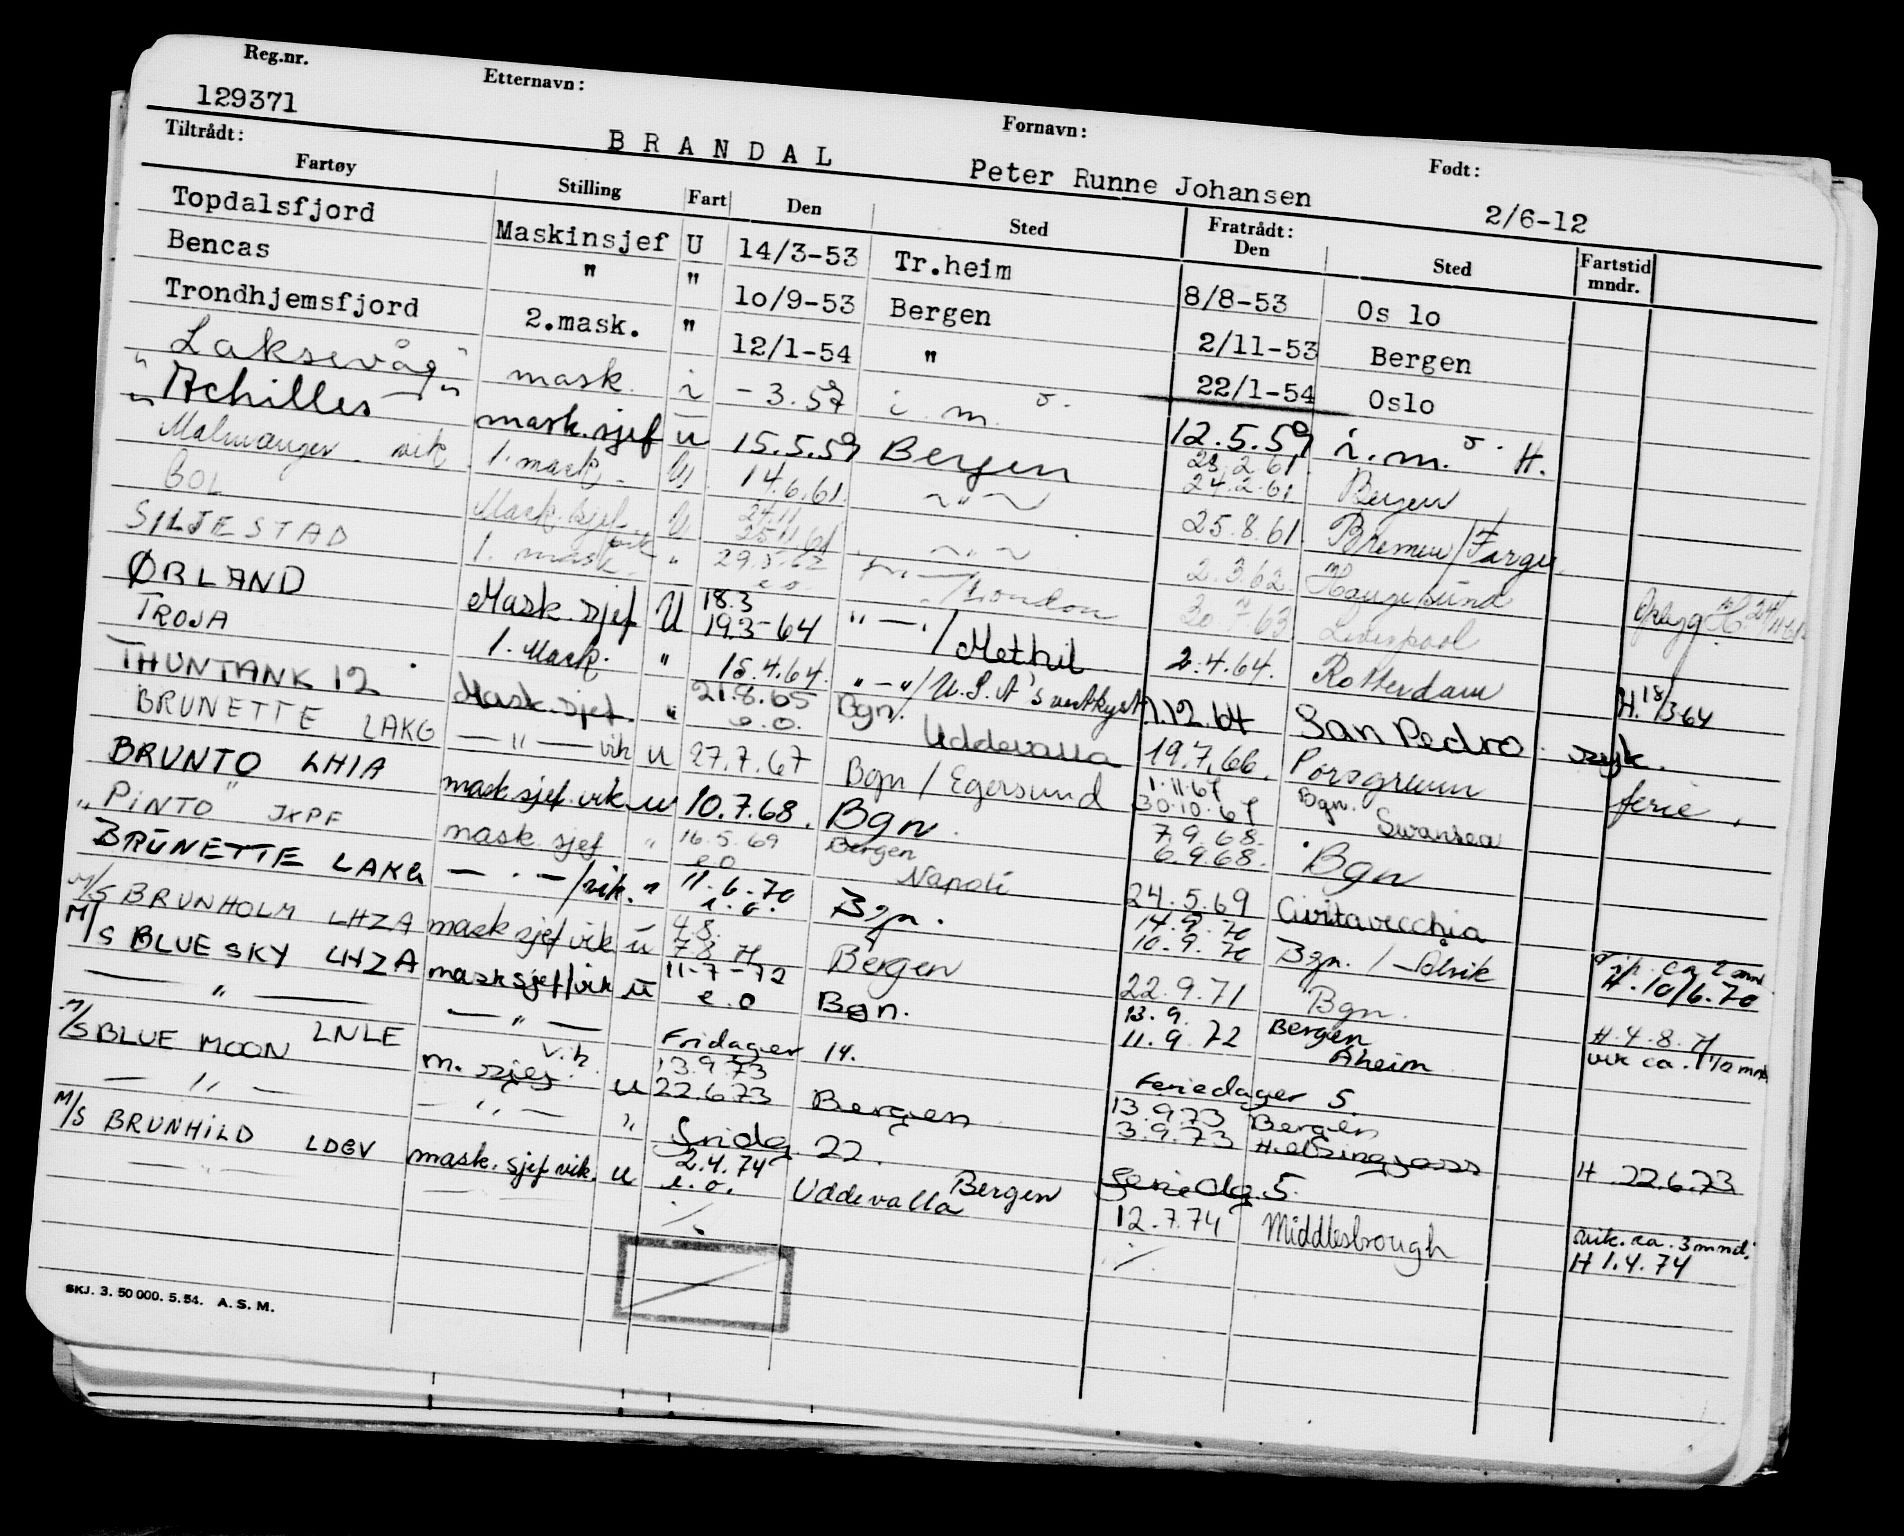 Reg.nr. Etternavn: Fornavn: Født:
129371 BRANDAL Peter Runne Johansen 2/6-12
Tiltrådt: Fratrådt:
Fartøy Stilling Fart Den Sted Den Sted Fartstid mndr.
Topdalsfjord Maskinsjef U 14/3-53 Tr.heim 8/8-53 Os lo
Bencas " " 1o/9-53 Bergen 2/11-53 Bergen
Trondhjemsfjord 2.mask. " 12/1-54 " 22/1-54 Oslo
"Laksevåg" mask. i - 3.59 i. m. o. 12.5.59 i. m. o. H.
"Achilles" mask.sjef u 15.5.59 Bergen 23.2.61. 24.2.61 Bergen
Malmanger vik 1. mask. U 14.6.61. ~"~ 25.8.61. Bremen/Farge
BOL Mask.sjef vik U 24.11 25.11.61 ~"~ 2.3.62 Haugesund H. 24/11-61
SILJESTAD 1. mask. " 29.5.62 e.o. /London 30.7.63 Liverpool
ØRLAND Mask.sjef U 18.3 19.3-64 "—"/Methil 2.4.64. Rotterdam H. 18/3-64
TROJA 1. Mask. " 15.4.64. "—"/U.S.A's vestkyst 7.12.64 San Pedro syk.
THUNTANK 12 Mask.sjef. " 21.8.65 e.o. Bgn. Uddevalla 19.7.66. Porsgrunn ferie.
BRUNETTE LAKG —"— vik u 27.7.67 Bgn/Egersund 1.11.67 30.10.67 Bgn. Swansea
BRUNTO LHIA mask.sjef.vik u 10.7.68. Bgn. 7.9.68. 6.9.68. Bgn
"PINTO" JXPF mask sjef " 16.5.69 e.o Bergen Napoli 24.5.69 Civitavecchia
BRUNETTE LAKG — " —/vik. " 11.6.70 e.o. Bgn. 14.9.70 10.9.70 Bgn. / vik. ca 2 mnd. H. 10/6.70
M/S BRUNHOLM LHZA mask sjef vik u 4.8. 7.8.71 Bergen 22.9.71 Bgn. H. 4.8.71
M/S BLUE SKY LHZA mask sjef/vik u 11-7-72 e.o Bgn. 13.9. 11.9.72 Bergen Åheim vik ca. 1 1/2 mnd
— " — — " — Fridager 14. Feriedager 5.
M/S BLUE MOON LNLE m. sjef vik. u 13.9.73 22.6.73 Bergen 13.9.73 3.9.73 Bergen Helsingfors H. 22.6.73
— " — — " — " Fridg 22. Feriedg. 5.
M/S BRUNHILD LDGV mask. sjef vik. u 2.4.74 e.o. Bergen Uddevalla 12.7.74 Middlesbrough vik. ca. 3 mnd. H 1.4.74
— " — ./. ./.
SKJ. 3. 50 000. 5.54. A.S.M.